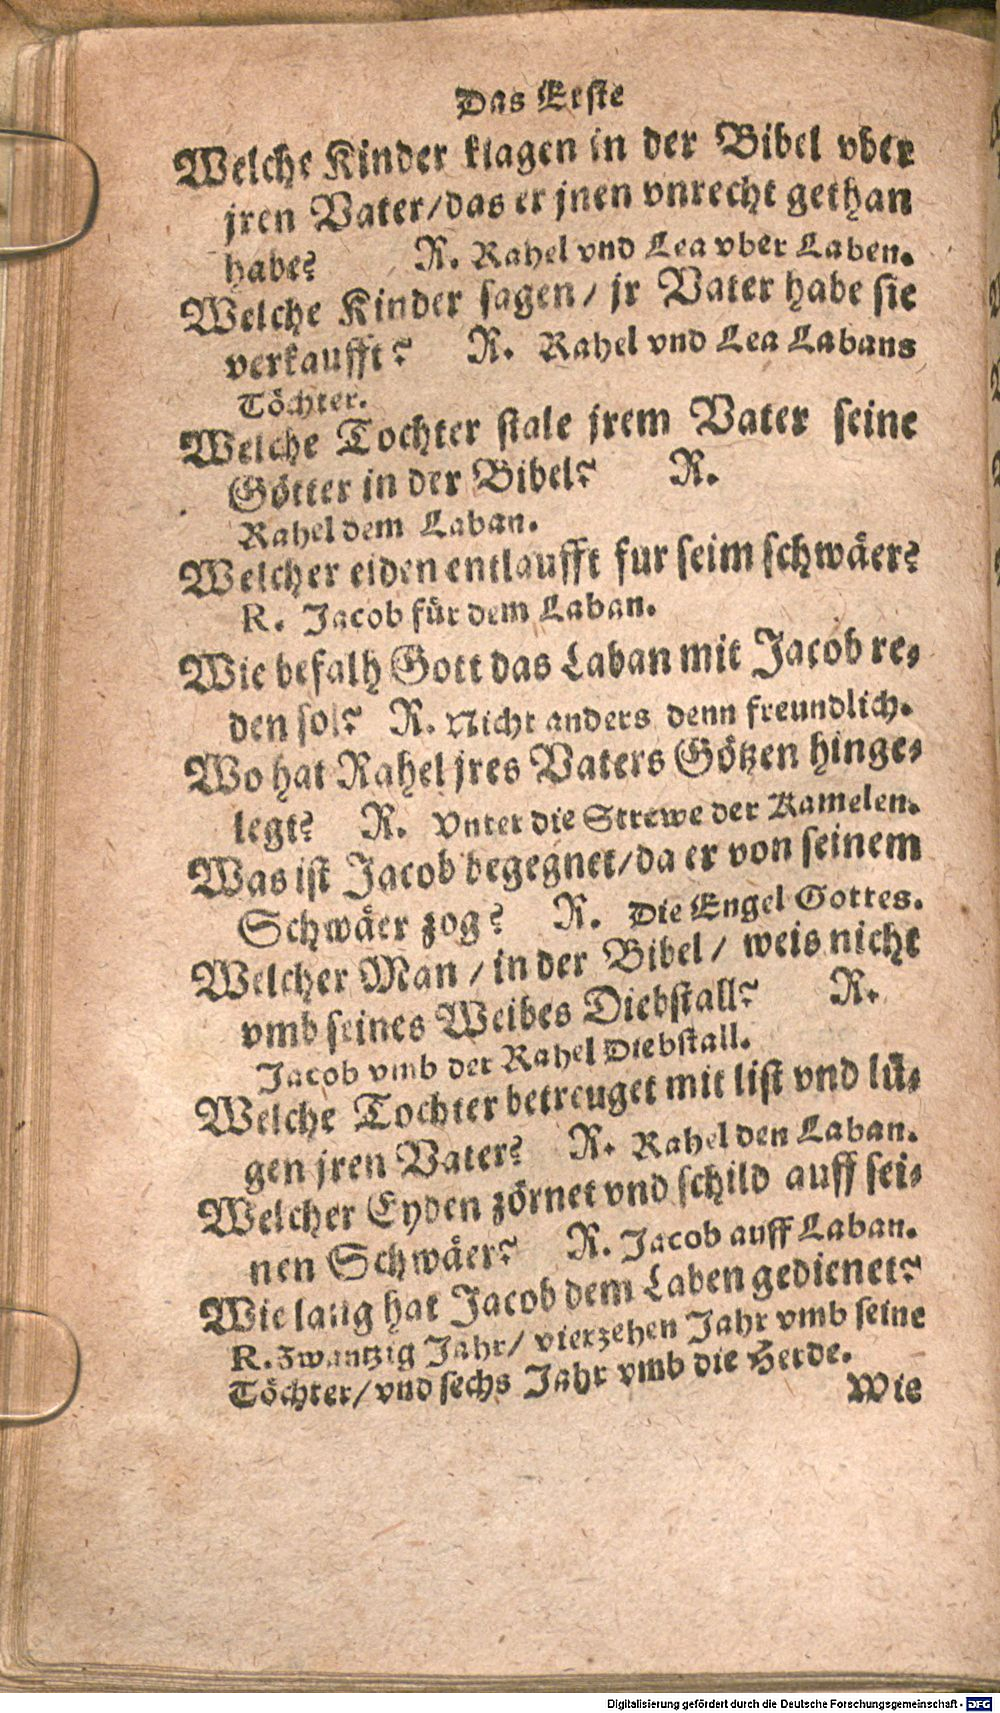 Das Erſte
Welche Kinder klagen in der Bibel vber
jren Vater/das er jnen vnrecht gethan
habe? R. Rahel vnd Lea vber Laben.
Welche Kinder ſagen/ jr Vater habe ſie
verkaufft? R. Rahel vnd Lea Labans
Töchter.
Welche Tochter ſtale jrem Vater ſeine
Götter in der Bibel? R.
Rahel dem Laban.
Welcher eiden entlaufft fur ſeim ſchwäer?
R. Jacob für dem Laban.
Wie befalh Gott das Laban mit Jacob re⸗
den ſol? R. Nicht anders denn freundlich.
Wo hat Rahel jres Vaters Götzen hinge⸗
legt? R. Vnter die Strewe der Kamelen.
Was iſt Jacob begegnet/da er von ſeinem
Schwäer zog? R. Die Engel Gottes.
Welcher Man/in der Bibel/ weis nicht
vmb ſeines Weibes Diebſtall? R.
Jacob vmb der Rahel Diebſtall.
Welche Tochter betreuget mit liſt vnd lü⸗
gen jren Vater? R. Rahel den Laban.
Welcher Eyden zörnet vnd ſchild auff ſei⸗
nen Schwäer? R. Jacob auff Laban.
Wie lang hat Jacob dem Laben gedienet?
R. Zwantzig Jahr/ vierzehen Jahr vmb ſeine
Töchter/vnd ſechs Jahr vmb die Herde.
Wie
Digitalisierung gefördert durch die Deutsche Forschungsgemeinschaft - DFG